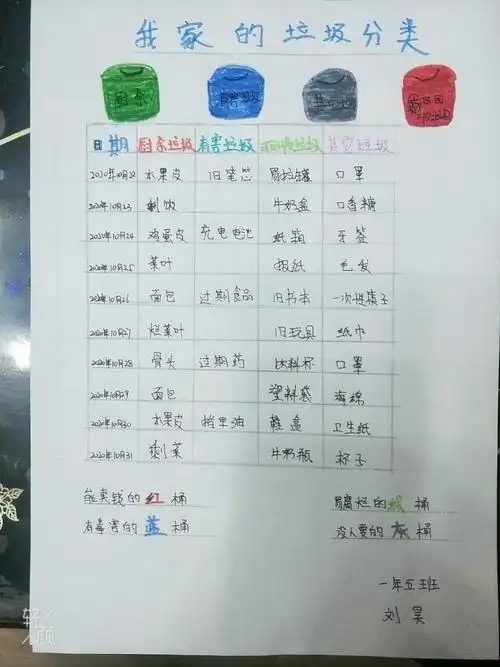 我家的垃圾分类
厨余
日期 厨余垃圾 有害垃圾 可回收垃圾 其它垃圾
2020年10月22 水果皮 旧笔芯 易拉罐 口罩
2020年10月23 剩饭 牛奶盒 口香糖
2020年10月24 鸡蛋皮 充电电池 纸箱 牙签
2020年10月25 菜叶 报纸 毛发
2020年10月26 面包 过期食品 旧书本 一次性筷子
2020年10月27 烂菜叶 旧玩具 纸巾
2020年10月28 骨头 过期药 饮料杯 口罩
2020年10月29 面包 塑料袋 海绵
2020年10月30 水果皮 指甲油 鞋盒 卫生纸
2020年10月31 剩菜 牛奶瓶 杯子
能卖钱的红桶 易腐烂的绿桶
有毒害的蓝桶 没人要的灰桶
一年五班
刘昊
轻颜